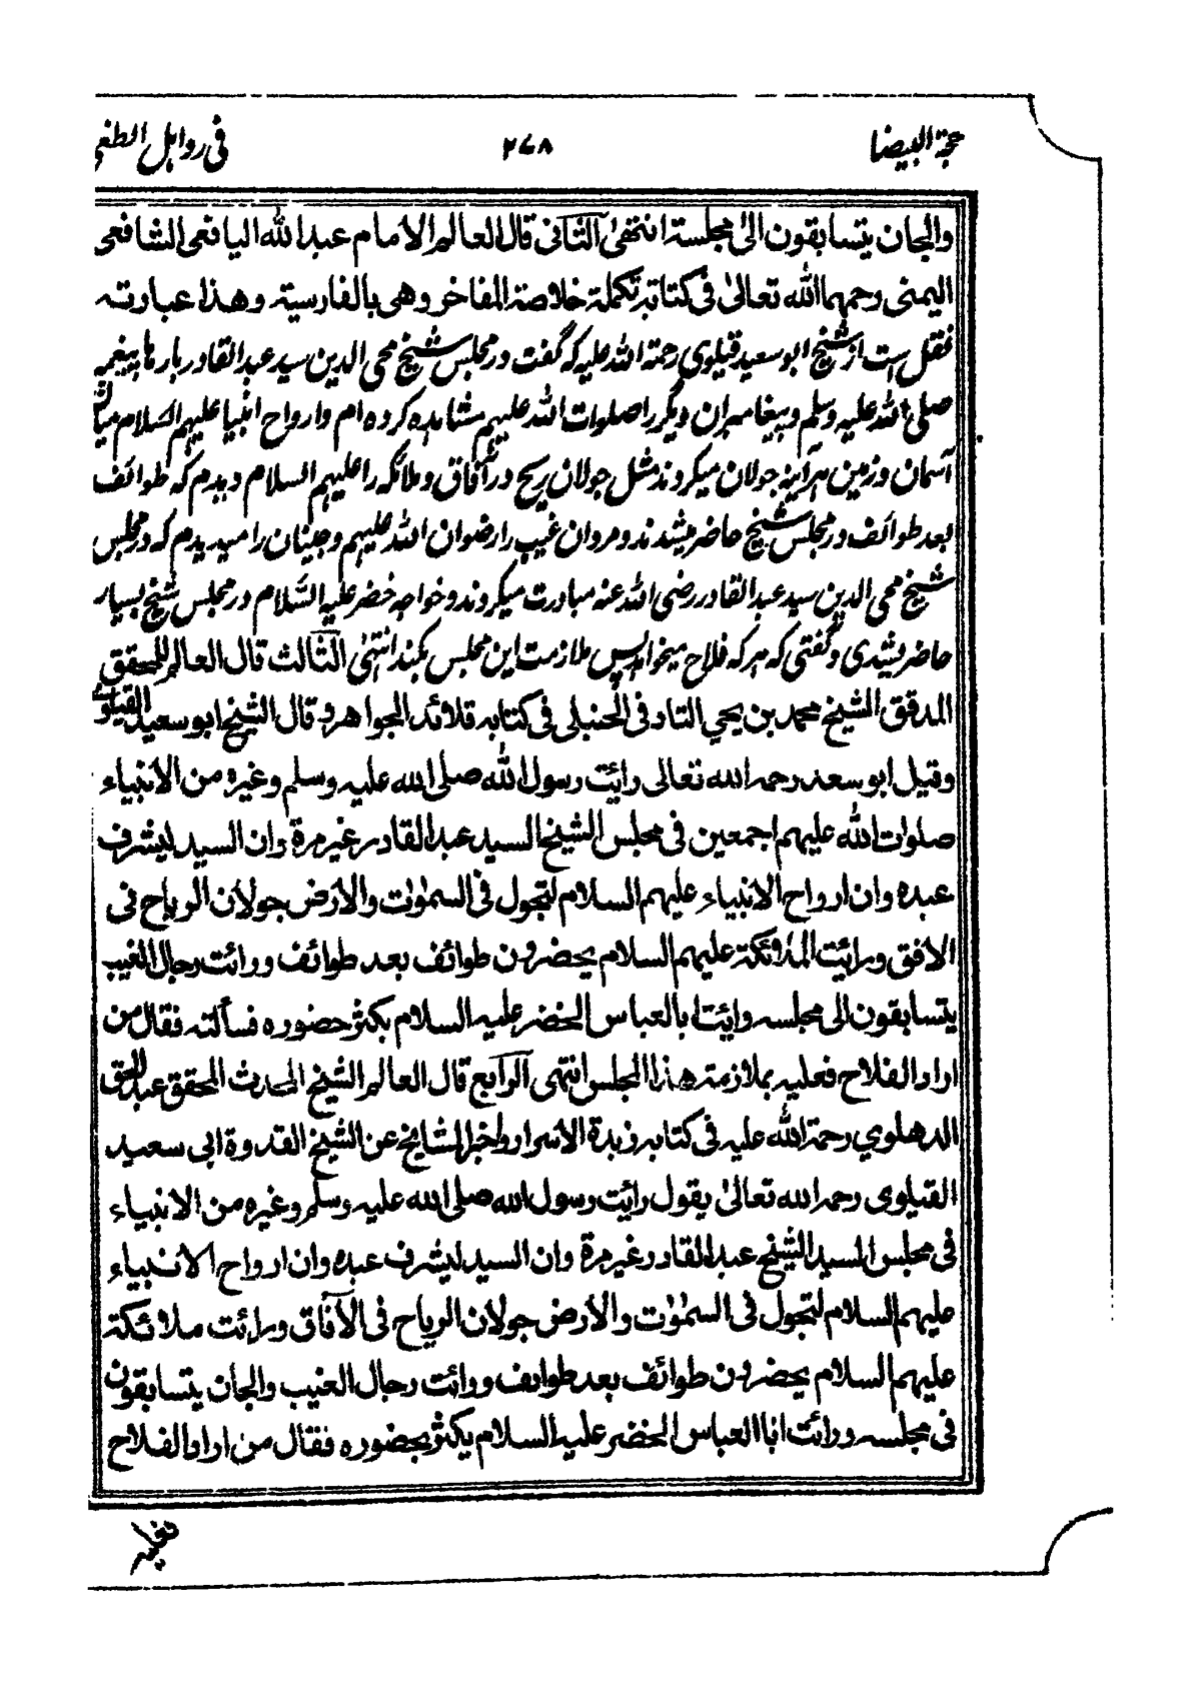 حجة البيضا ٢٧٨ فى روابل الطغى
والجان يتسابقون الىٰ مجلسة انتهىٰ الثانى قال العالم الامام عبد الله اليافعى الشافعى
اليمنى رحمهما الله تعالىٰ فى كتابه تكملة خلاصة المفاخر وهى بالفارسية وهذا عبارته
نقل ست از شيخ ابو سعيد قيلوى رحمة الله عليه كه گفت در مجلس شيخ محى الدين سيد عبد القادر بارها پيغمبر
صلى الله عليه وسلم وپيغامبران ديگر را صلوات الله عليهم مشاهده كرده ام وارواح انبيا عليهم السلام ميان
آسمان وزمين هر آينه جولان ميكردند مثل جولان ريح در آفاق وملائكه را عليهم السلام ديدم كه طوائف
بعد طوائف در مجلس شيخ حاضر ميشدند ومردان غيب را رضوان الله عليهم وجنيان را ميديدم كه در مجلس
شيخ محى الدين سيد عبد القادر رضى الله عنه مبادرت ميكردند وخواجه خضر عليه السّلام در مجلس شيخ بسيار
حاضر ميشدى وگفتى كه هر كه فلاح ميخواهد پس ملازمت اين مجلس بكند انتهىٰ الثالث قال العالم المحقق
المدقق الشيخ محمد بن يحي التادفى الحنبلى فى كتابه قلائد الجواهر وقال الشيخ ابو سعيد القيلوى
وقيل ابو سعد رحمه الله تعالى رائت رسول الله صلى الله عليه وسلم وغيره من الانبياء
صلوات الله عليهم اجمعين فى مجلس الشيخ السيد عبد القادر غير مرة وان السيد ليشرف
عبده وان ارواح الانبياء عليهم السلام لتجول فى السمٰوٰت والارض جولان الرياح فى
الافق ورائيت الملائكة عليهم السلام يحضرون طوائف بعد طوائف ورائت رجال الغيب
يتسابقون الى مجلسه وائت ابا العباس الخضر عليه السلام بكثر حضوره فسألته فقال من
اراد الفلاح فعليه بملازمة هذا المجلس انتهى الرابع قال العالم الشيخ المحدث المحقق عبد الحق
الدهلوي رحمة الله عليه فى كتابه زبدة الاسرار واخبر المشايخ عن الشيخ القدوة ابى سعيد
القيلوى رحمه الله تعالىٰ يقول رائت رسول الله صلى الله عليه وسلم وغيره من الانبياء
فى مجلس السيد الشيخ عبد القادر غير مرة وان السيد ليشرف عبده وان ارواح الانبياء
عليهم السلام لتجول فى السمٰوٰت والارض جولان الرياح فى الآفاق ورائت ملائكة
عليهم السلام يحضرون طوائف بعد طوايف ورائت رجال الغيب والجان يتسابقون
فى مجلسه ورائت ابا العباس الخضر عليه السلام يكثر بحضوره فقال من اراد الفلاح